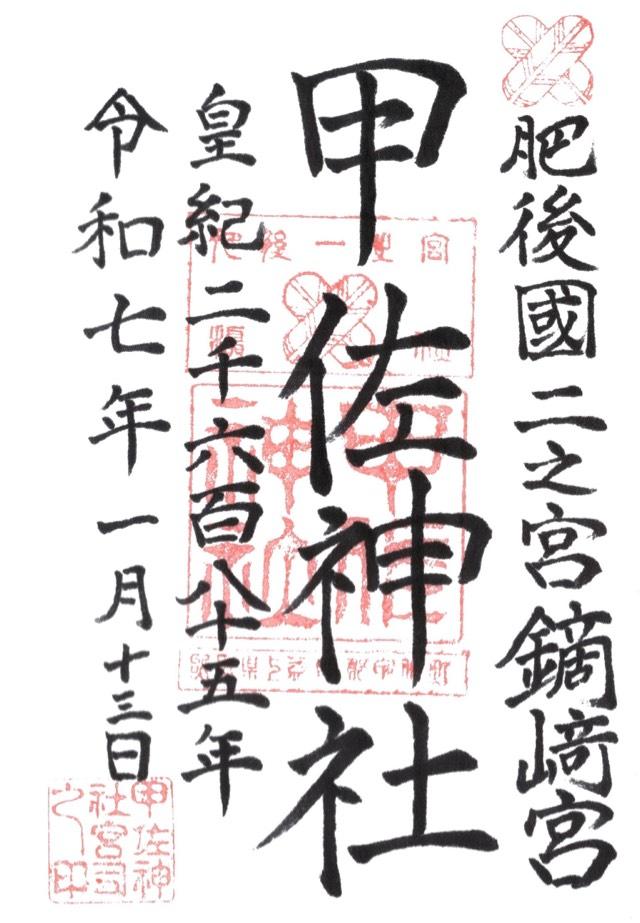 肥後國二之宮鏑﨑宮
甲佐神社
皇紀二千六百八十五年
令和七年一月十三日
甲佐神
社宮司
之印